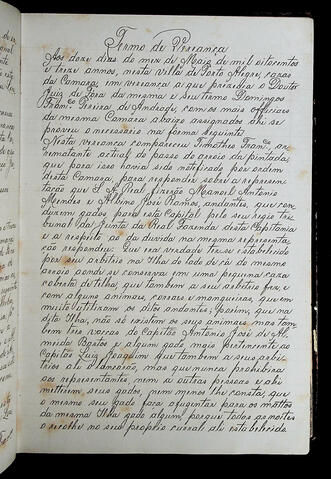 Termo de Vereança
Aos doze dias do mez de Maio de mil oitocentos
e treze annos, nesta villa de Porto Alegre, cazas
da Camara, em vereança a que prezedio o Doutor
Juiz de Fóra da mesma e seu termo Domingos
Franco Pereira de Andrade, com os mais officiaes
da mesma Camara abaixo assignados ahi se
proveu o necessario na forma seguinte
Nesta vereança compareceu Timotheo Franco ar-
rematante actual do passo do arroio da pintada;
que para isso havia sido notificado por ordem
desta Camara, para responder sobre a represen-
tação que S. A. Real fizerão Manoel Antonio
Mendes e Albino José Ramos, andantes, que con-
duzem gados para esta Capital pelo seu regio Tri
bunal da Junta da Real Fazenda desta Capitania
e a respeito da duvida na mesma representa
ção respondeu: Que era verdade ter-se estabelecido
por seu arbitrio na Ilha do lado de cá do mesmo
arroio aonde se conserva em uma pequena caza
coberta de telha, que tambem a seu arbitrio fez, e
com alguns animaes, curraes e mangueiras, que em
muito utilizam os ditos andantes; Porém, que na
dita Ilha, não só existem os seus animaes, mas tam-
bem trez vaccas do Capitão Antonio José de Al-
meida Bastos e algum gado mais pertencente ao
Capitão Luiz Joaquim que tambem a seus arbi-
trios ali o lançarão, mas que nunca prohibira
aos representantes, nem a outras pessoas e ahi
metterem, seus gados, nem menos lhe consta, que
o mesmo seu gado faça afugentar para os mattos
da mesma Ilha gado algum, porque todas as noites
o recolhe no seu proprio curral ali estabelecido